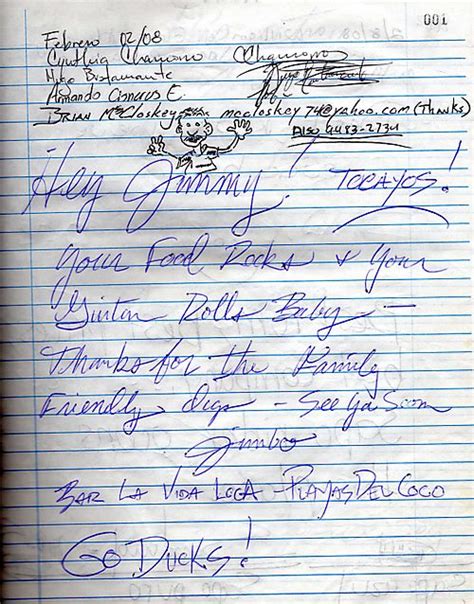 001
Febrero 02/08
Cynthia Chamorro Chamorro
Hugo Bustamante
Armando Cisneros E.
Brian McCloskey mccloskey74@yahoo.com (Thanks)
Also 4483-2734
Hey Jimmy! Tocayos!
Your Food Rocks & Your
Rolls Baby —
Thanks for the Family
Friendly digs - See Ya Soon
Jimbo
Bar La Vida Loca - Playas Del Coco
Go Ducks!